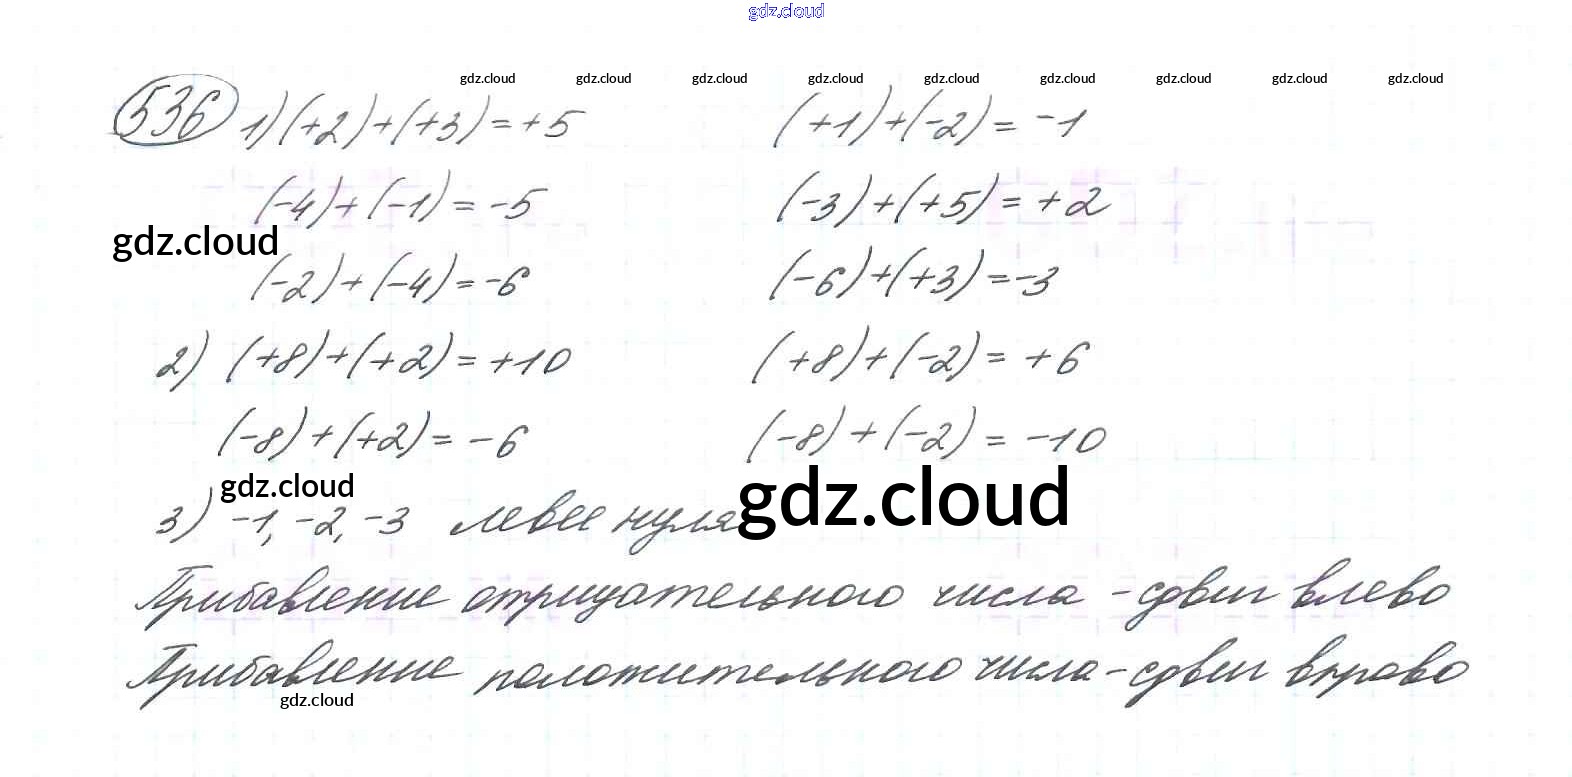 gdz.cloud
gdz.cloud gdz.cloud gdz.cloud gdz.cloud gdz.cloud gdz.cloud gdz.cloud gdz.cloud gdz.cloud
536 1) (+2)+(+3)=+5 (+1)+(-2)= -1
(-4)+(-1)= -5 (-3)+(+5)= +2
gdz.cloud
(-2)+(-4)= -6 (-6)+(+3)= -3
2) (+8)+(+2)= +10 (+8)+(-2)= +6
(-8)+(+2)= -6 (-8)+(-2)= -10
gdz.cloud gdz.cloud
3) -1, -2, -3 левее нуля
Прибавление отрицательного числа - сдвиг влево
Прибавление положительного числа - сдвиг вправо
gdz.cloud